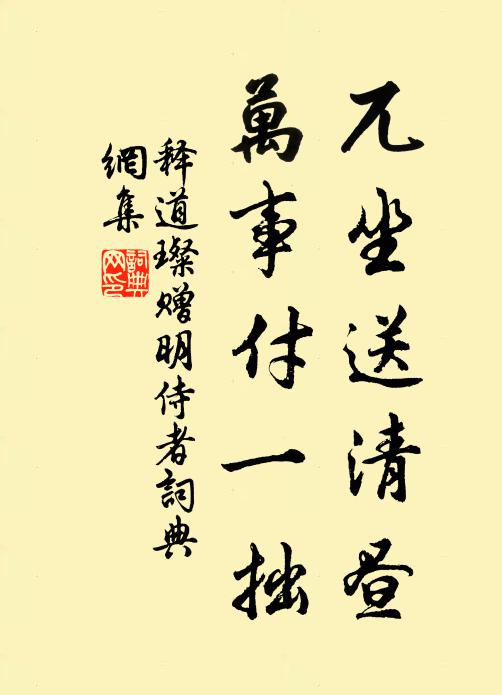 兀坐送清昼
萬事付一拙
释道璨赠明侍者詞典
網集
詞典
网印